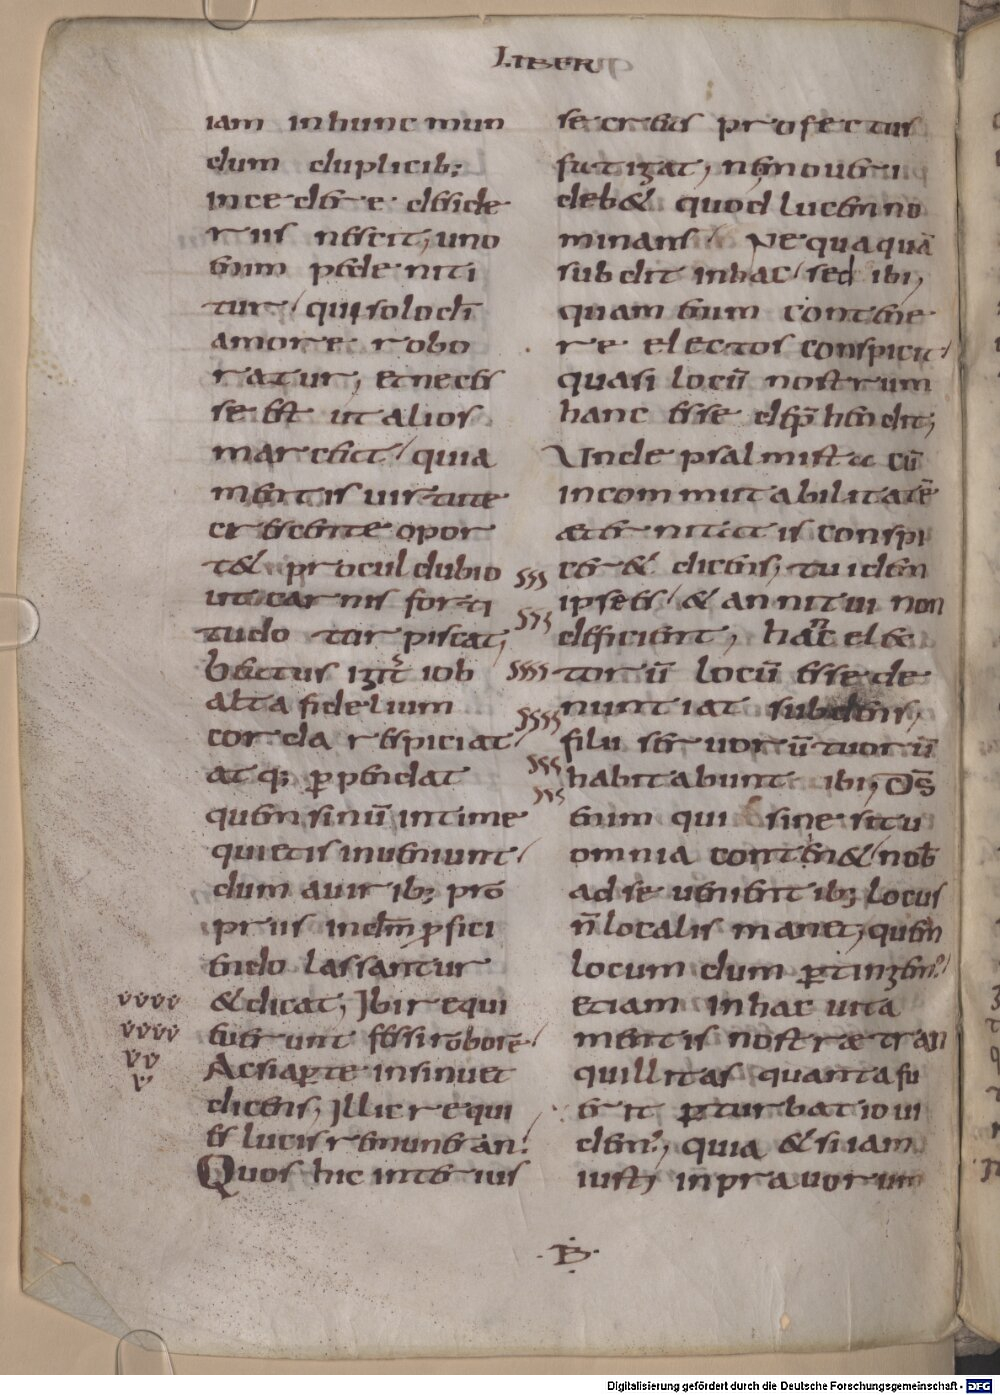 LIBER
iam inhunc mun
dum duplicib;
incedere deside
riis nescit, uno
enim pede niti
tur qui solo dī
amore robo
ratur, et neces
se est ut alios
marceat quia
mentis uirtute
crescente opor
t& procul dubio
ut carnis forti
tudo torpiscat,
beatus igit iob
alta fidelium
corda respiciat
atq; ꝑpendat
quem sinū intime
quietis inueniunt
dum a uirib; pro
priis in dm̄ ꝓfici
endo lassantur
& dicat, Ibi requi
euerunt fessi robore
Ac si aꝑte insinuet
dicens, Illic requi
es lucis remunerat
Quos hic interius
secretus profectus
fatigat, nemo ueri
deb& quod lucem no
minans Nequaquā
subdit in hac sed ibi,
quam enim contine
re electos conspicit
quasi locū nostrum
hanc esse dep̄hendit;
Unde psalmista cū
incommutabilitatē
aeternitatis conspi
cer& dicens, tu idem
ipse es & anni tui non
deficient, hanc elec
torū locū esse de
nuntiat subdens,
filii seruorū tuorū
habitabunt ibi, Ds̄
enim qui sine situ
omnia contin& nob
ad se uenientib; locus
n̄ localis manet, quem
locum dum ꝑtingem
etiam in hac uita
mentis nostrae tran
quillitas quanta fu
erit ꝑturbatio ui
dem, quia & si iam
iusti in prauorum
B
Digitalisierung gefördert durch die Deutsche Forschungsgemeinschaft - DFG